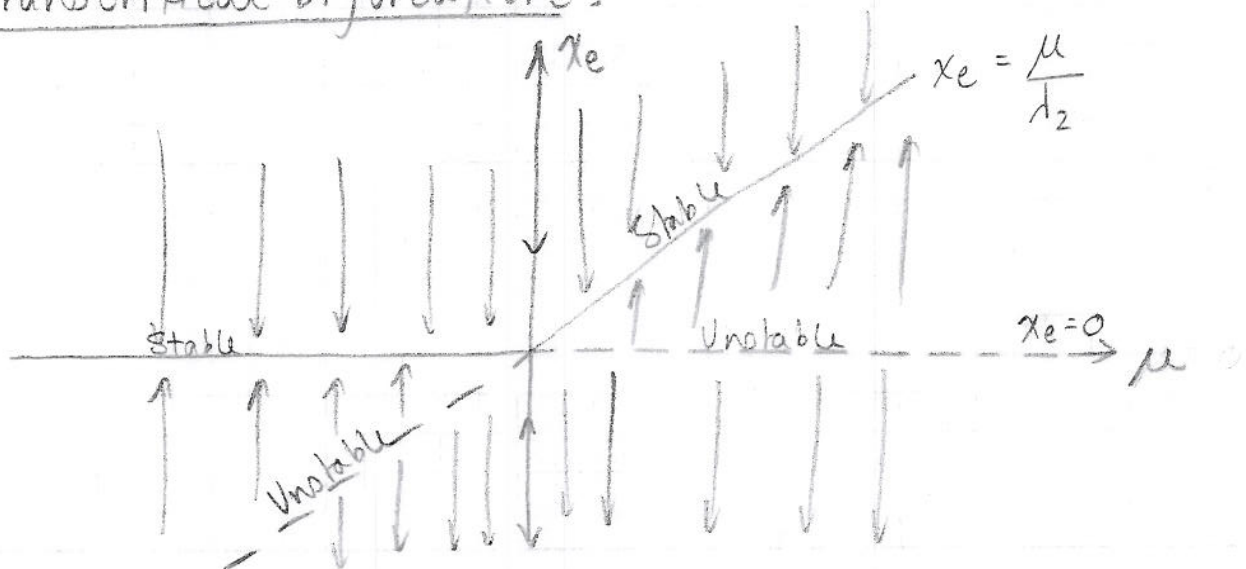 Transcritical bifurcation:
xₑ
xₑ = μ/λ₂
Stable
Stable
Unstable
xₑ=0
μ
Unstable